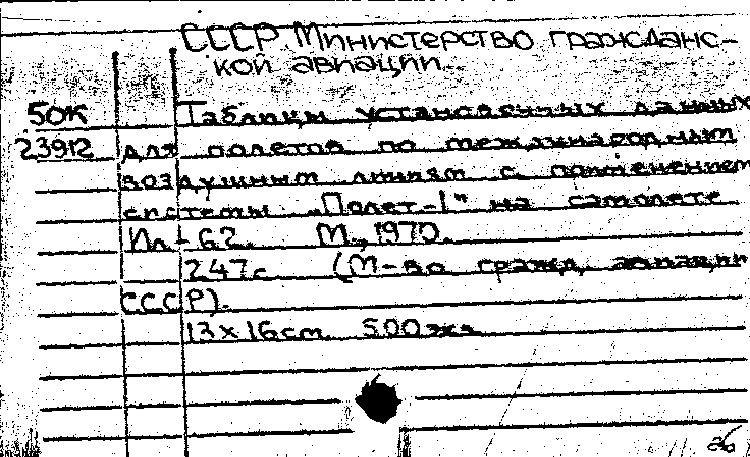 СССР. Министерство гражданс-
кой авиации.
50к Таблицы установочных данных
23912 для полетов по международным
воздушным линиям с применением
системы „Полет-1" на самолете
Ил-62. М., 1970.
247с. (М-во гражд. авиации
СССР).
13х16см. 500экз.